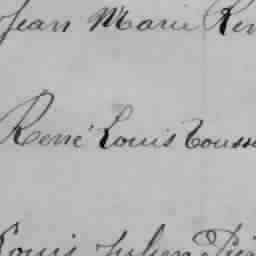 Jean Marie Ren
René Louis Touss
Louis Julien Pier